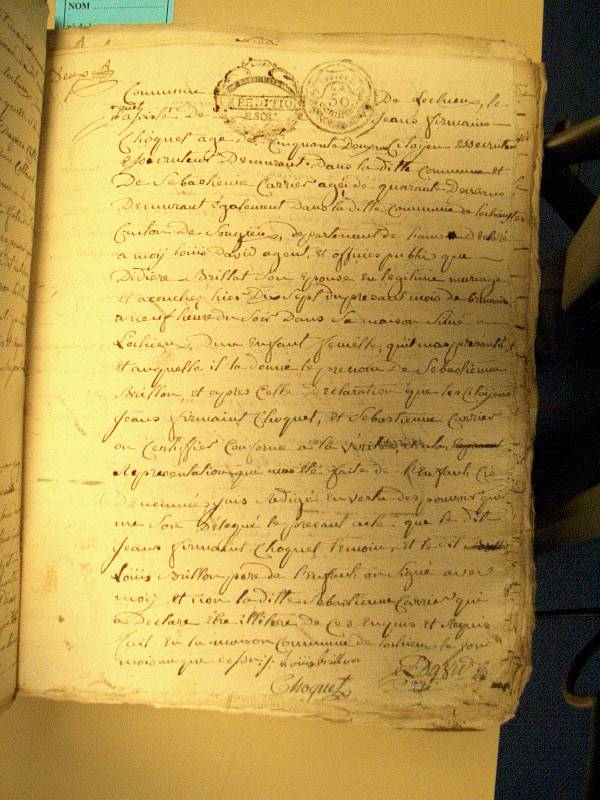 NOM
Commune De Lochieu, le
EXPEDITION
8 SOLS
50
assisté De Jeans firmains
Choquet age de Cinquante Deux Citoyen
Demurant, Dans la ditte Commune et
De Sebastienne Carrier agéé de quarant Deux ans
Demurant Egalement Dans la ditte Commune de lochieu
Canton De Songieu, departement de a Declaré
a moÿ louis David agent, et officier public que
Didière Brillat Son Epouse En legitime mariage
Et acouchez hier Dix Sept du present mois de
a neuf heure du Soir Dans Sa maison Situé a
Lochieu, D'un Enfant femelle, quil ma presenté,
Et auquelle il la donné le prenom de Sebastienne
Brillon, et apres Celle Declaration que les Citoyens
Jeans firmaint Choquet, et Sebastienne Carrier
on Certiffier Conforme a la Vérité, et a la
Representation qui ma Eté faite de l'Enfant Cie
Denommé, jais Redigé En vertu des pouvoir qui
me Son Delegué le present acte que le dit
Jeans firmaint Choquet temoin, et le dit
Loüis Brillon pere de l'Enfant on Signé avec
moÿ et non la ditte Sebastienne Carrier qui
a Declare Etre illitere de Ces Enquis et Requis
fait En la maison Commune de lochieu le jour
mois an que dessus. Loüis brillon
Choquet David